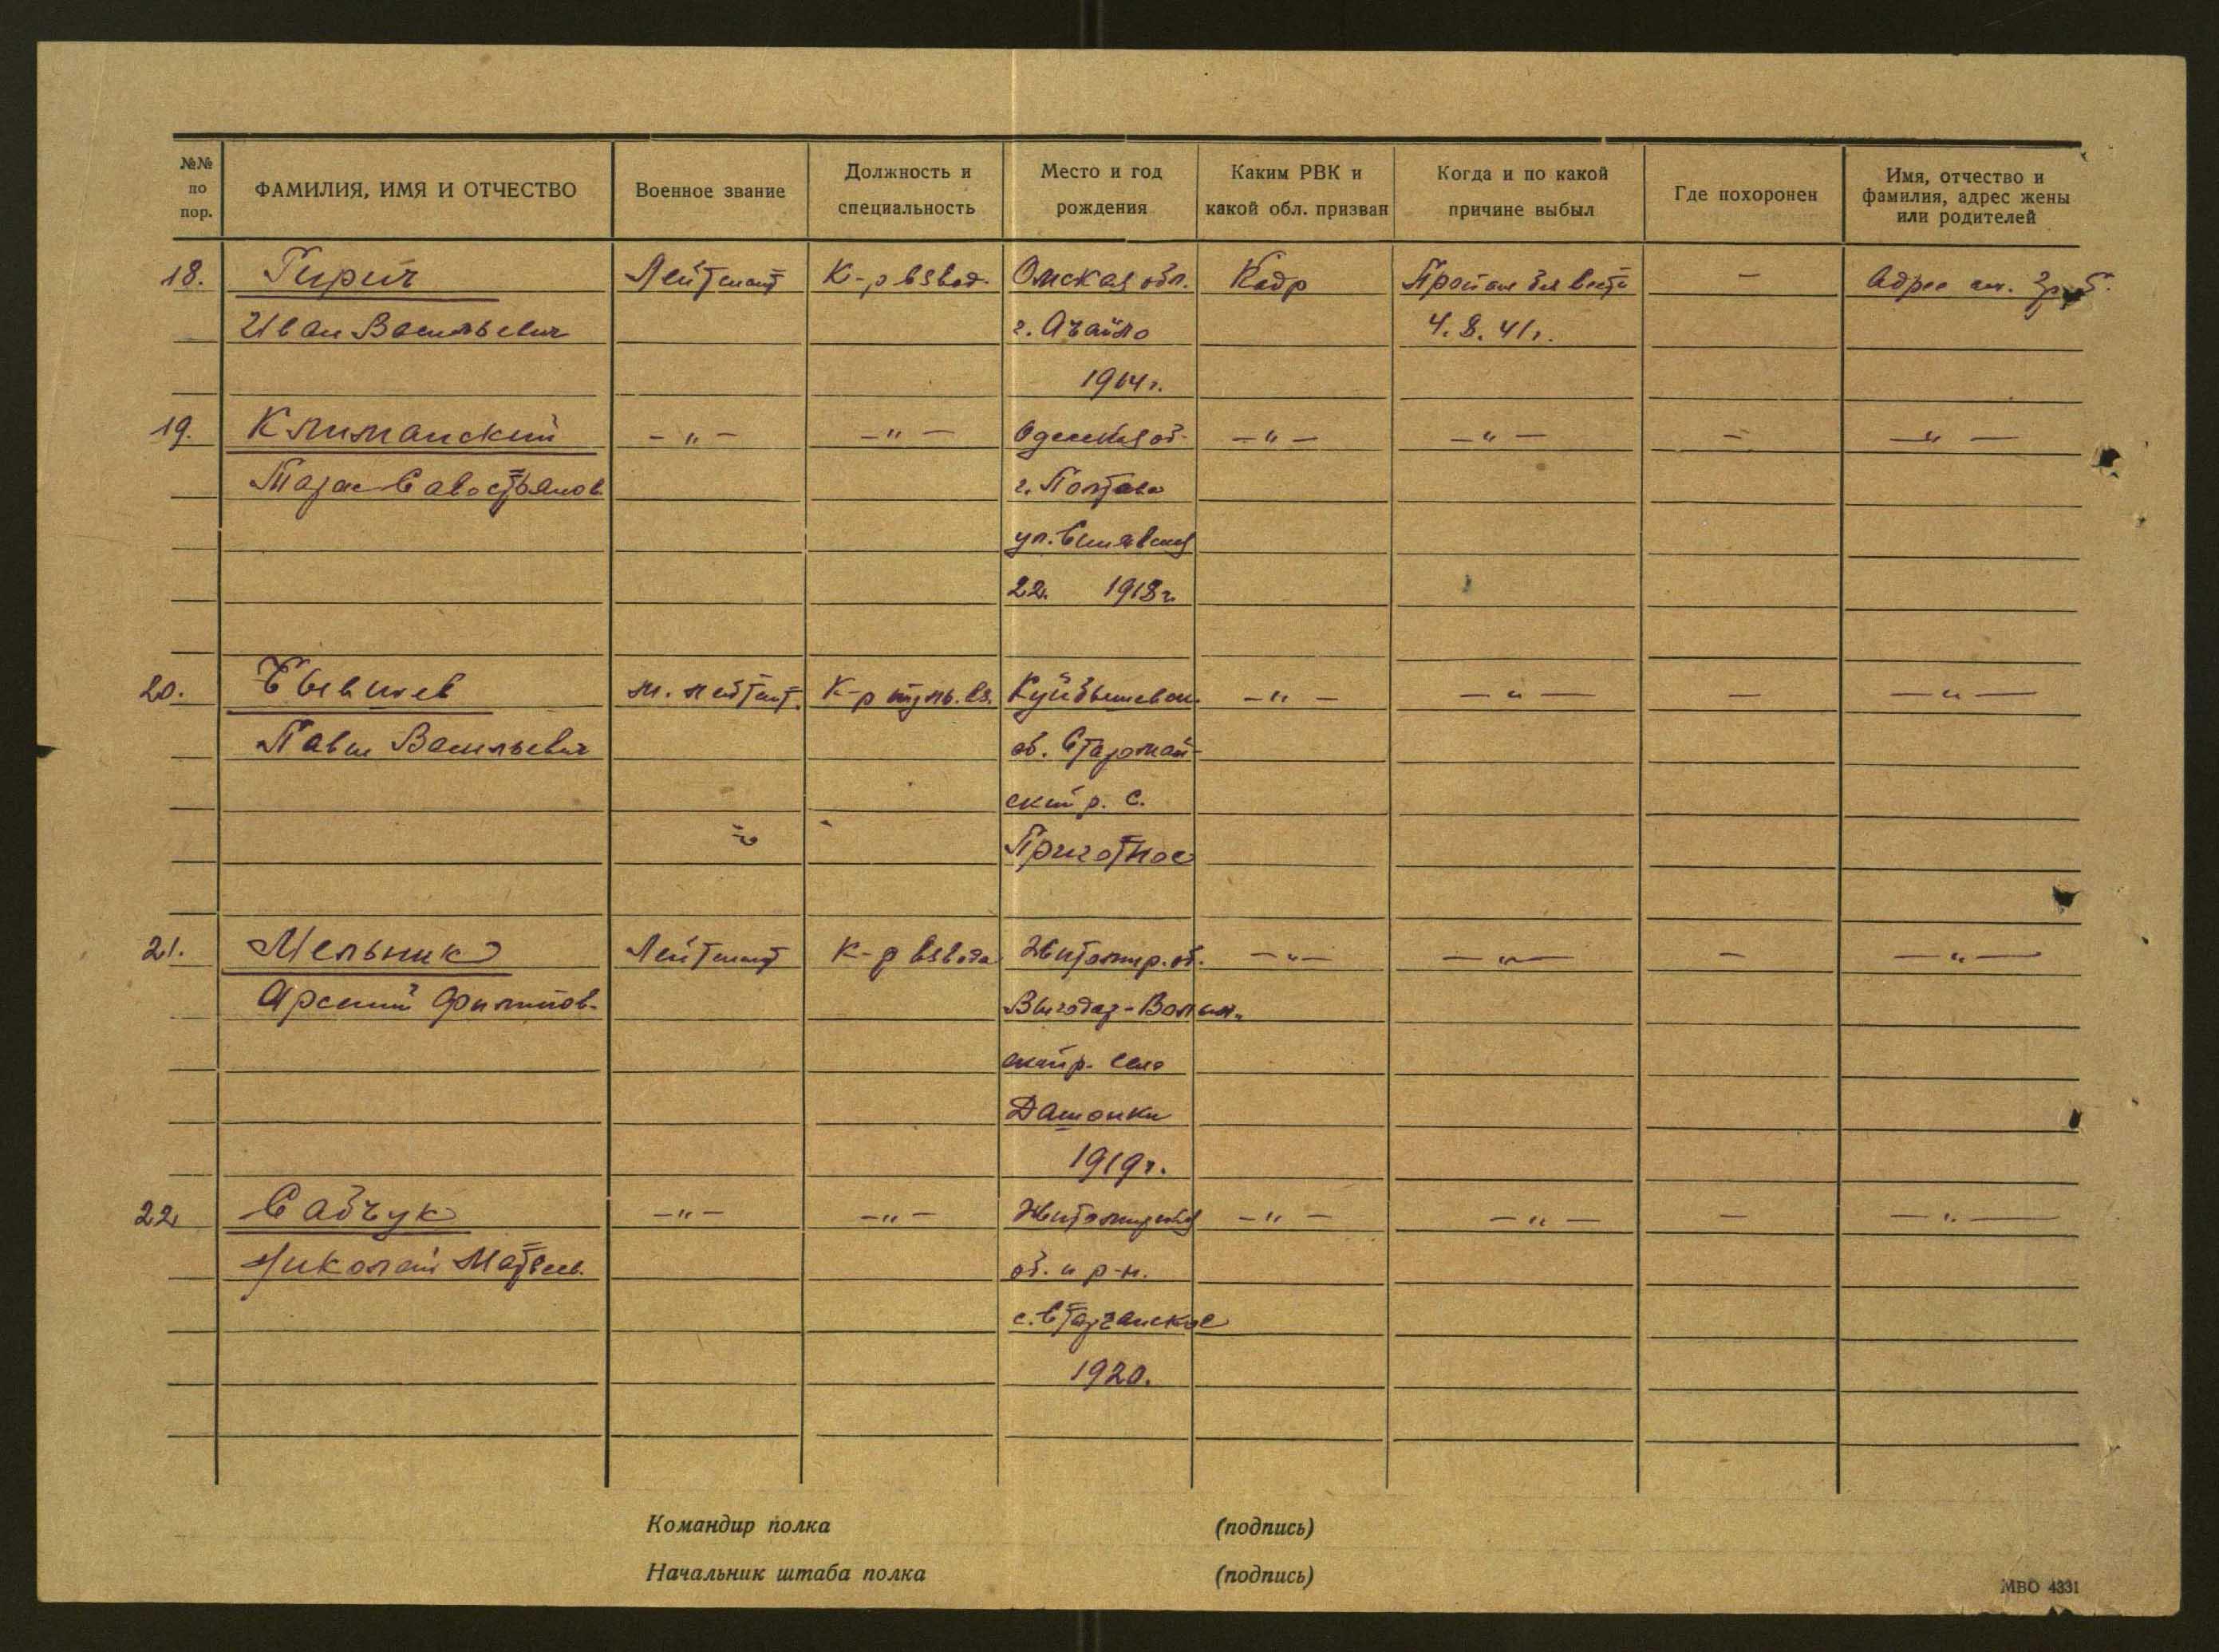 №№ по пор.
ФАМИЛИЯ, ИМЯ И ОТЧЕСТВО
Военное звание
Должность и
специальность
Место и год
рождения
Каким РВК и
какой обл. призван
Когда и по какой
причине выбыл
Где похоронен
Имя, отчество и
фамилия, адрес жены
или родителей
18. Гирич Лейтенант К-р взвод. Омская обл. Кадр Пропал без вести —
Иван Васильевич г. 4.8.41г.
1914 г.
19. Климанский — " — — " — Одесская об. — " — — " — — — " —
Тарас Савостьянов. г. Полтава
ул.
22. 1918 г.
20. Павел Васильевич
м. лейтент. К-р пуль. вз. Куйбышевск. — " — — " — — — " —
об. Старомай-
ский р. с.
21. Мельник Лейтенант К-р взвода Житомир. об. — " — — " — — — " —
Арсений Филипов. -Волын.
ский р. село
Дашонки
1919 г.
22 Сабчук — " — — " — Житомирская — " — — " — — — " —
Николай Матвеев. об. и р-н.
с.
1920.
Командир полка (подпись)
Начальник штаба полка (подпись)
МВО 4331